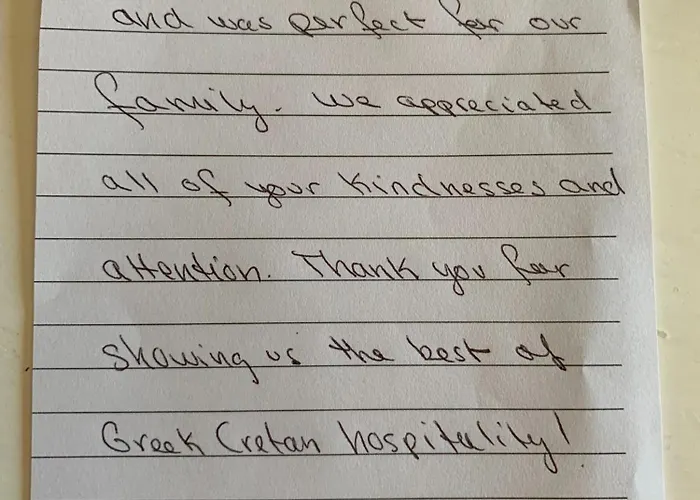 and was perfect for our
family. We appreciated
all of your kindnesses and
attention. Thank you for
showing us the best of
Greek Cretan hospitality!